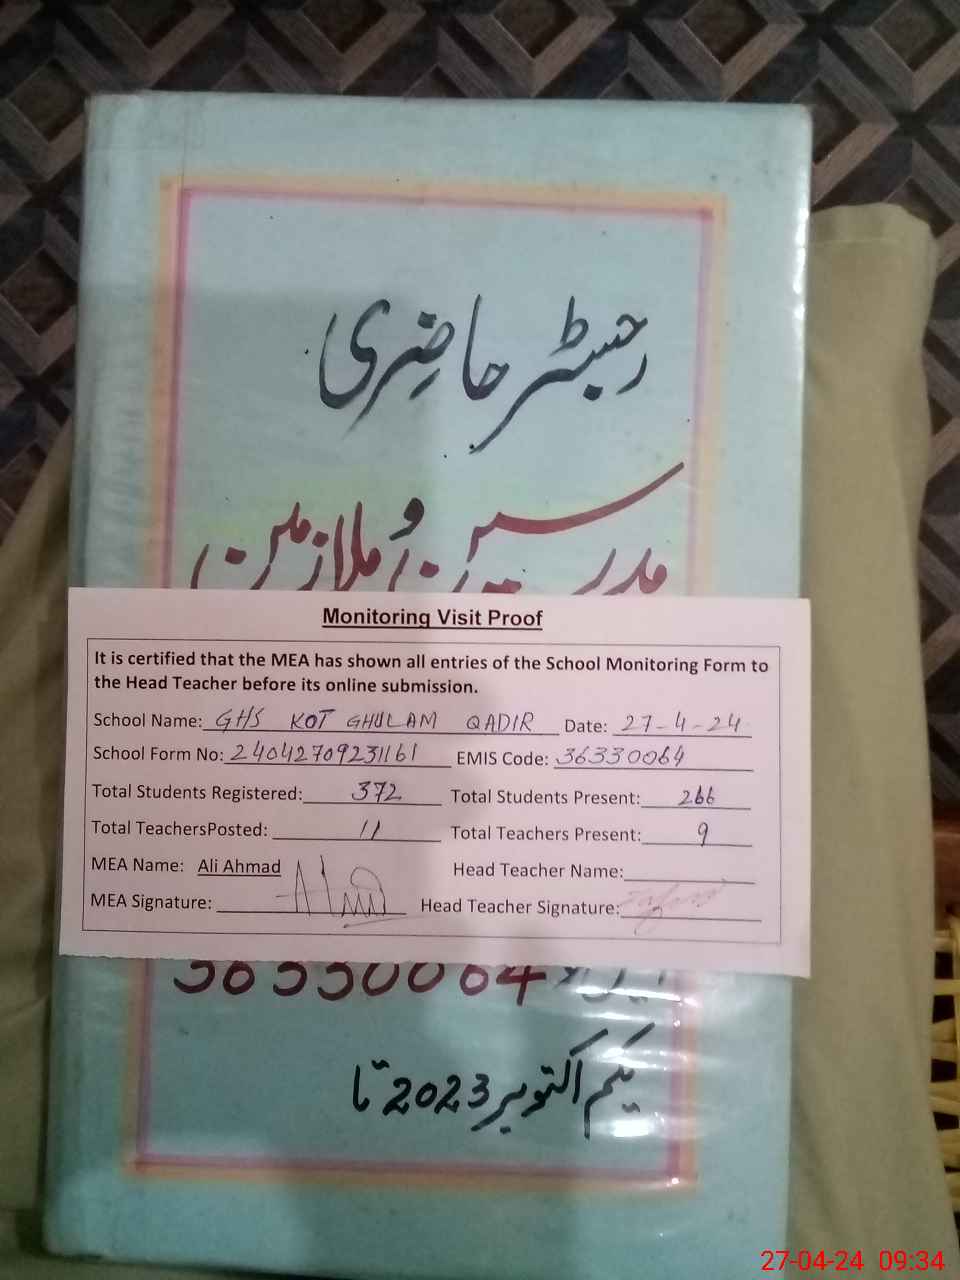 رجسٹر حاضری
مدرسین و ملازمین
Monitoring Visit Proof
It is certified that the MEA has shown all entries of the School Monitoring Form to
the Head Teacher before its online submission.
School Name: GHS KOT GHULAM QADIR Date: 27-4-24
School Form No: 24042709231161 EMIS Code: 36330064
Total Students Registered: 372 Total Students Present: 266
Total TeachersPosted: 11 Total Teachers Present: 9
MEA Name: Ali Ahmad Head Teacher Name:
MEA Signature: Head Teacher Signature:
36330064
یکم اکتوبر 2023 تا
27-04-24 09:34